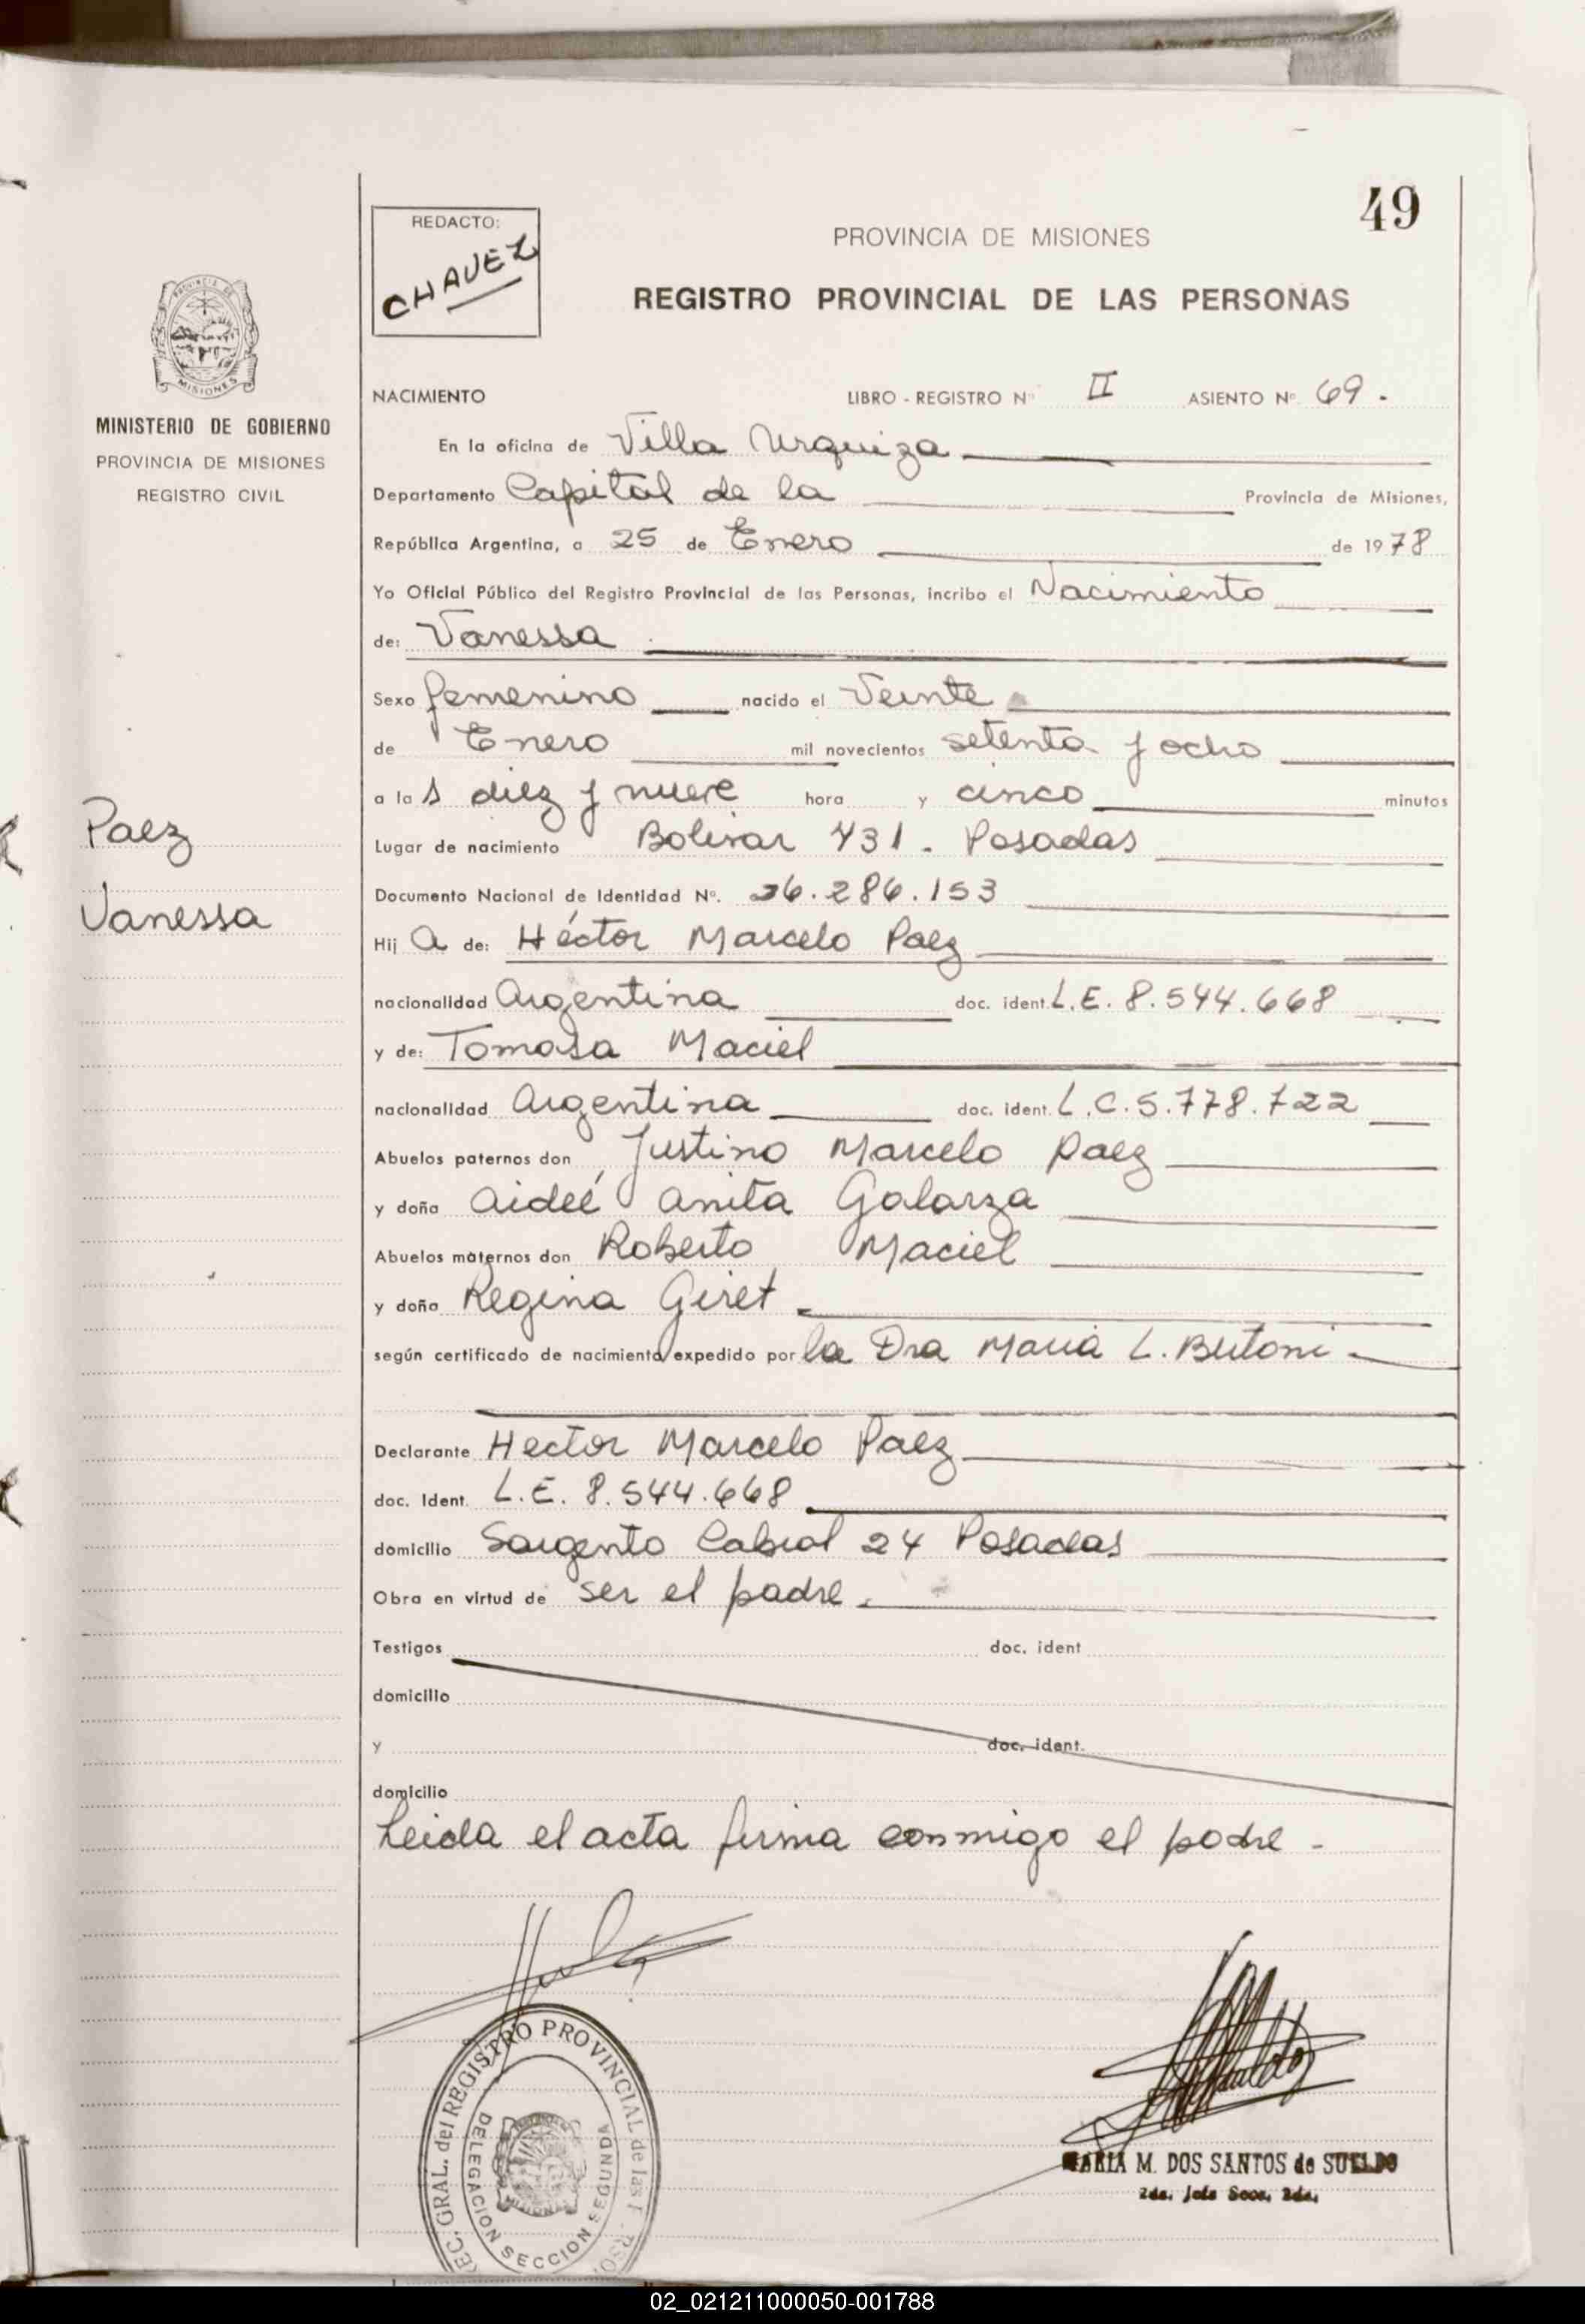 49
REDACTO:
CHAVEZ
PROVINCIA DE MISIONES
REGISTRO PROVINCIAL DE LAS PERSONAS
MISIONES
MINISTERIO DE GOBIERNO
PROVINCIA DE MISIONES
REGISTRO CIVIL
NACIMIENTO LIBRO - REGISTRO Nº II ASIENTO Nº 69.
En la oficina de Villa Urquiza
Departamento Capital de la Provincia de Misiones,
República Argentina, a 25 de Enero de 1978
Yo Oficial Público del Registro Provincial de las Personas, incribo el Nacimiento
de: Vanessa
Sexo femenino nacido el Veinte
de Enero mil novecientos setenta y ocho
a las diez y nueve hora y cinco minutos
Paez
Vanessa
Lugar de nacimiento Bolivar 431. Posadas
Documento Nacional de Identidad Nº. 26.286.153
Hija de: Héctor Marcelo Paez
nacionalidad Argentina doc. ident. L.E. 8.544.668
y de: Tomasa Maciel
nacionalidad Argentina doc. ident. L.C. 5.778.722
Abuelos paternos don Justino Marcelo Paez
y doña Aideé Anita Galarza
Abuelos maternos don Roberto Maciel
y doña Regina Giret
según certificado de nacimiento expedido por la Dra Maria L. Bertoni
Declarante Hector Marcelo Paez
doc. Ident. L.E. 8.544.668
domicilio Sargento Cabral 24 Posadas
Obra en virtud de ser el padre.
Testigos doc. ident
domicilio
y doc. ident.
domicilio
Leida el acta firma conmigo el padre.
GRAL. del REGISTRO PROVINCIAL de las
DELEGACION SECCION SEGUNDA
MARIA M. DOS SANTOS de SUELDO
2da. Jefe Secc. 2da.
02_021211000050-001788